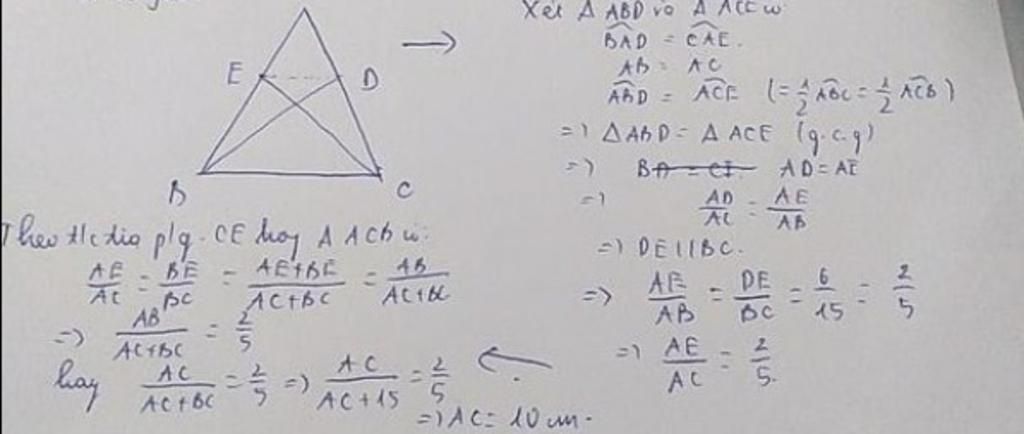 E D
B C
Xét Δ ABD và Δ ACE có
\widehat{BAD} = \widehat{CAE}.
AB = AC
\widehat{ABD} = \widehat{ACE} (= 1/2 \widehat{ABC} = 1/2 \widehat{ACB})
=> Δ ABD = Δ ACE (g.c.g)
=> AD = AE
=> AD/AC = AE/AB
=> DE // BC.
=> AE/AB = DE/BC = 6/15 = 2/5
=> AE/AC = 2/5.
Theo t/c của p/g. CE Δ ACB có:
AE/AC = BE/BC = (AE+BE)/(AC+BC) = AB/(AC+BC)
=> AB/(AC+BC) = 2/5
hay AC/(AC+BC) = 2/5 => AC/(AC+15) = 2/5
=> AC = 10 cm.